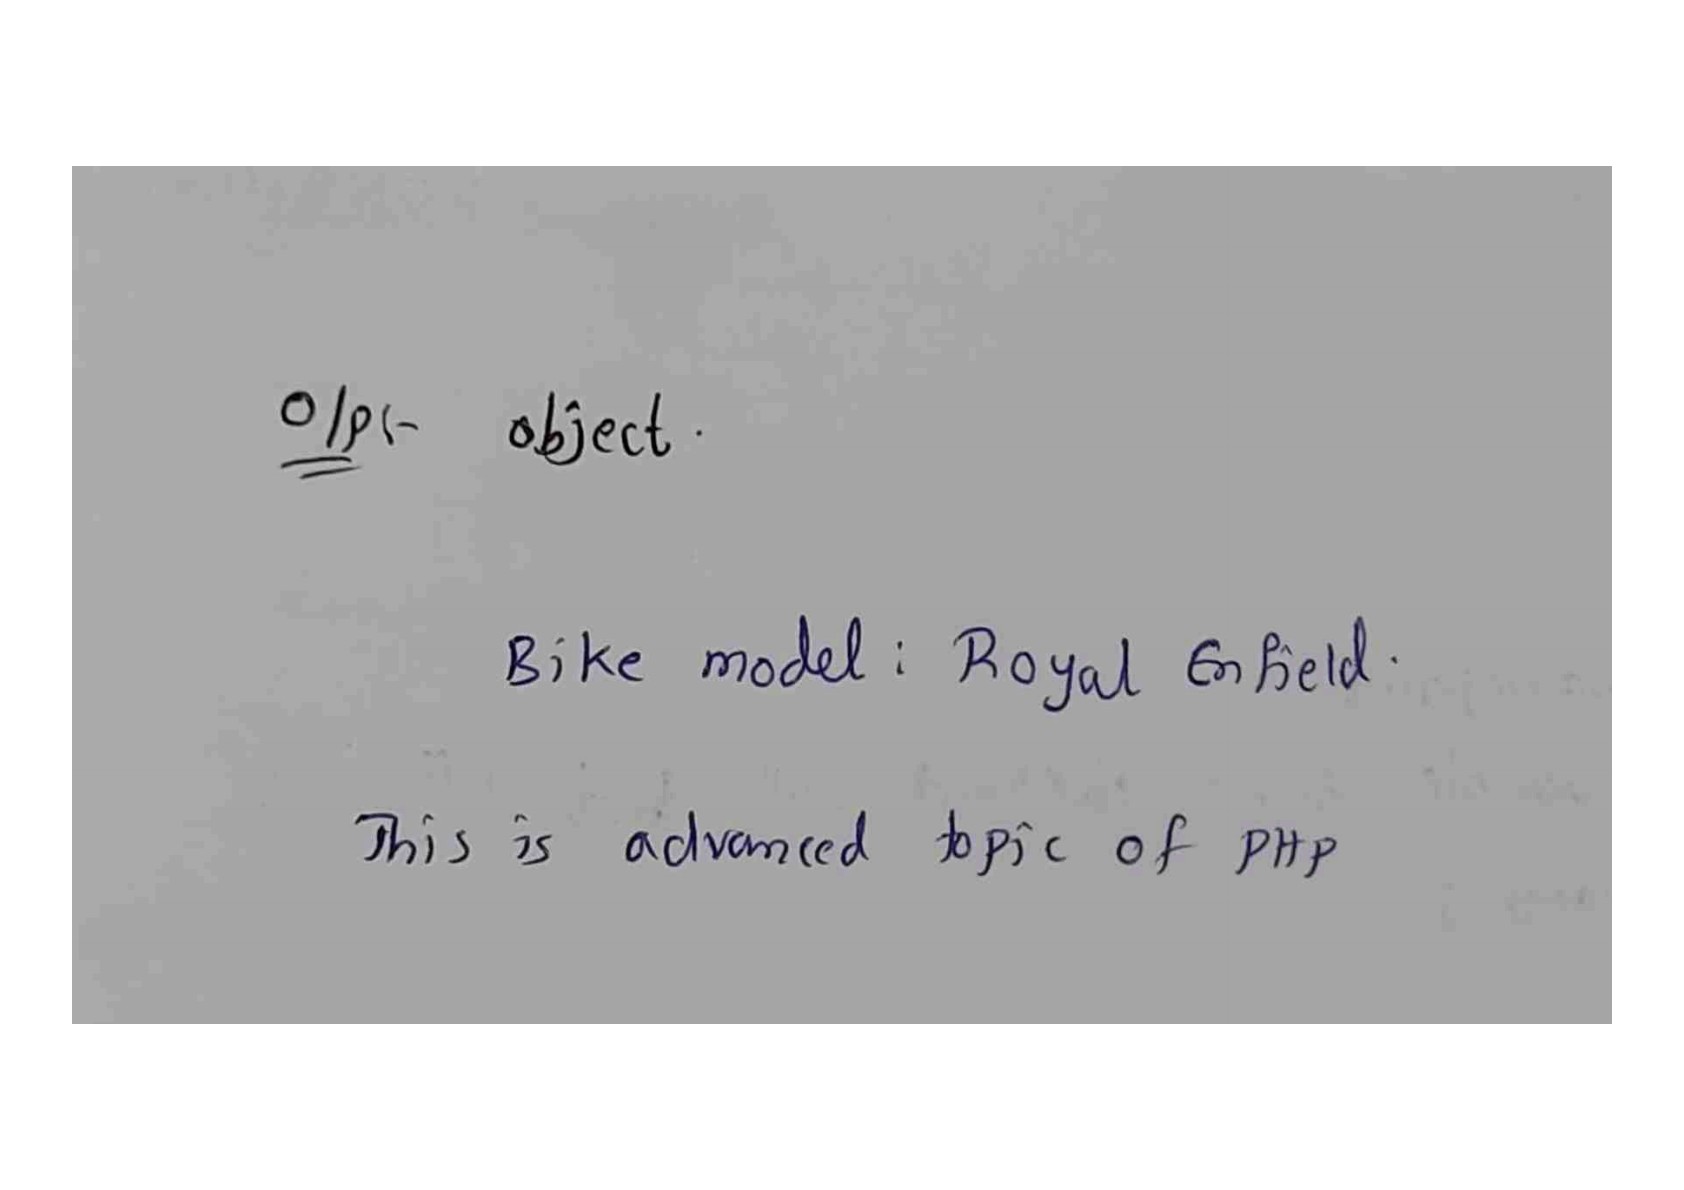 O/P:- object.
Bike model : Royal Enfield.
This is advanced topic of PHP